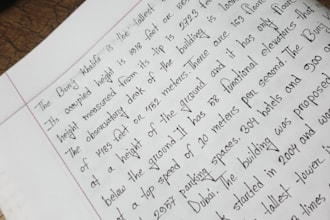 The Burj Khalifa is the tallest
Its occupied height is 1918 feet or
height measured from its tip is 2723 fe
The observatory desk of the building is loca
of 1483 feet or 452 meters. There are 163 floors
at a height of the ground and it has only floor
below the ground. It has 58 functional elevators that
at a top speed of 10 meters per second. The Burj
2957 parking spaces 304 hotels and 900
Dubai. The building was proposed
started in 2004 and wo
tallest tower is
times